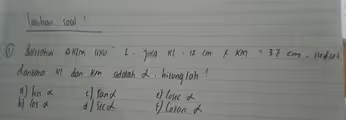 Latihan soal !
① Diketahui Δ KLM siku² L. Jika KL = 12 cm & KM = 37 cm. sudut
diantara KL dan KM adalah α. hitunglah !
a) sin α c) tan α e) cosec α
b) cos α d) sec α f) cotan α